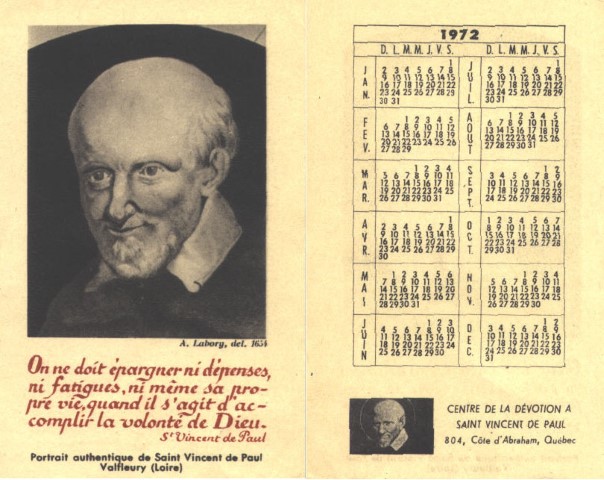 A. Laborg, del. 1654
On ne doit épargner ni dépenses,
ni fatigues, ni même sa pro-
pre vie, quand il s'agit d'ac-
complir la volonté de Dieu.
St Vincent de Paul
Portrait authentique de Saint Vincent de Paul
Valfleury (Loire)
1972
D. L. M. M. J. V. S.
JAN.
1
2 3 4 5 6 7 8
9 10 11 12 13 14 15
16 17 18 19 20 21 22
23 24 25 26 27 28 29
30 31
FEV.
1 2 3 4 5
6 7 8 9 10 11 12
13 14 15 16 17 18 19
20 21 22 23 24 25 26
27 28 29
MAR.
1 2 3 4
5 6 7 8 9 10 11
12 13 14 15 16 17 18
19 20 21 22 23 24 25
26 27 28 29 30 31
AVR.
1
2 3 4 5 6 7 8
9 10 11 12 13 14 15
16 17 18 19 20 21 22
23 24 25 26 27 28 29
30
MAI
1 2 3 4 5 6
7 8 9 10 11 12 13
14 15 16 17 18 19 20
21 22 23 24 25 26 27
28 29 30 31
JUIN
1 2 3
4 5 6 7 8 9 10
11 12 13 14 15 16 17
18 19 20 21 22 23 24
25 26 27 28 29 30
D. L. M. M. J. V. S.
JUIL.
1
2 3 4 5 6 7 8
9 10 11 12 13 14 15
16 17 18 19 20 21 22
23 24 25 26 27 28 29
30 31
AOUT
1 2 3 4 5
6 7 8 9 10 11 12
13 14 15 16 17 18 19
20 21 22 23 24 25 26
27 28 29 30 31
SEPT.
1 2
3 4 5 6 7 8 9
10 11 12 13 14 15 16
17 18 19 20 21 22 23
24 25 26 27 28 29 30
OCT.
1 2 3 4 5 6 7
8 9 10 11 12 13 14
15 16 17 18 19 20 21
22 23 24 25 26 27 28
29 30 31
NOV.
1 2 3 4
5 6 7 8 9 10 11
12 13 14 15 16 17 18
19 20 21 22 23 24 25
26 27 28 29 30
DEC.
1 2
3 4 5 6 7 8 9
10 11 12 13 14 15 16
17 18 19 20 21 22 23
24 25 26 27 28 29 30
31
CENTRE DE LA DÉVOTION A
SAINT VINCENT DE PAUL
804, Côte d'Abraham, Québec